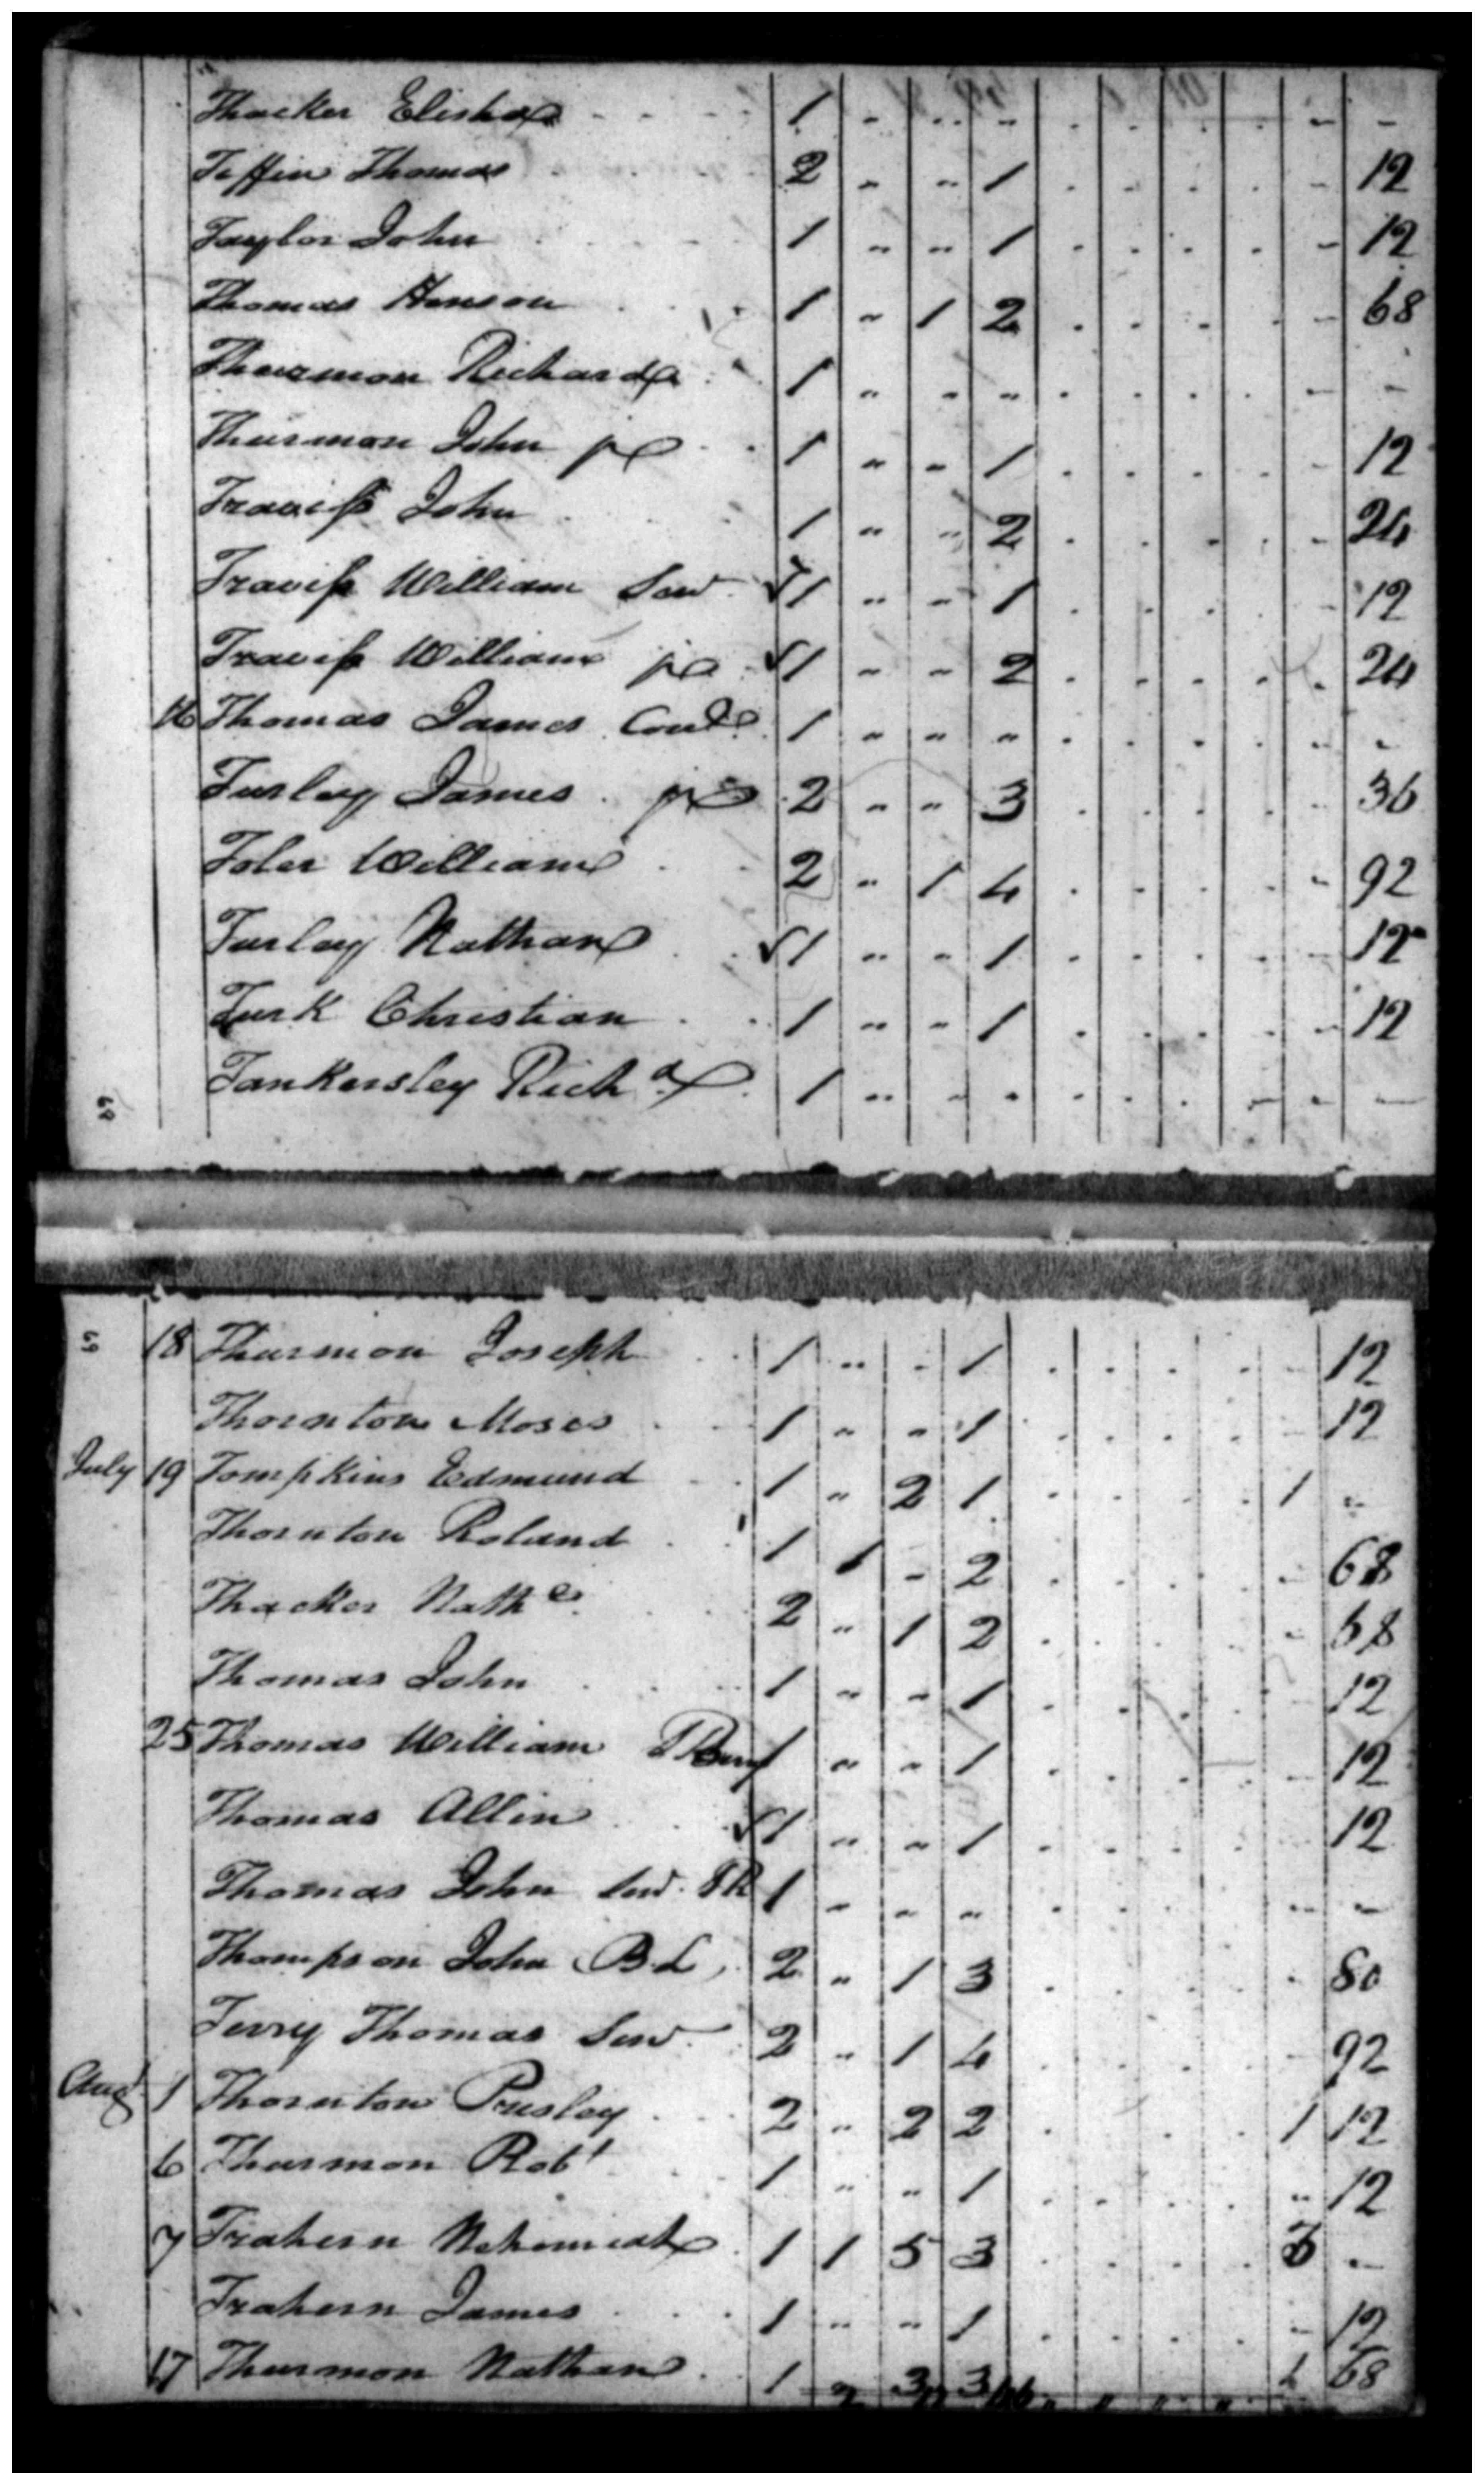 Thacker Elisha 1 " " " . . . . " -
Teffin Thomas 2 " " 1 . . . . - 12
Taylor John 1 " " 1 . . . . - 12
Thomas Henson 1 " 1 2 . . . . - 68
Thurmon Richard 1 " " " . . . . - -
Thurmon John jr 1 " " 1 . . . . - 12
Traviss John 1 " " 2 . . . . - 24
Traviss William Senr √1 " " 1 . . . . - 12
Traviss William jr √1 " " 2 . . . . . 24
16 Thomas James Cont. 1 " " " . . . . " -
Turley James jr 2 " " 3 . . . . - 36
Toler William 2 " 1 4 . . . . - 92
Turley Nathan √1 " " 1 . . . . - 12
Turk Christian 1 " " 1 . . . . - 12
Tankersley Richd 1 " " . . . . - - -
69
69 18 Thurmon Joseph 1 " . 1 . . . . - 12
Thornton Moses 1 " " 1 . . . . - 12
July 19 Tompkins Edmund 1 " 2 1 . . . . 1 "
Thornton Roland 1 1 - 2 . . . . - 68
Thacker Nathl 2 " 1 2 . . . . - 68
Thomas John 1 " " 1 . . . . - 12
25 Thomas William 1 " " 1 . . . . - 12
Thomas Allin √1 " " 1 . . . . - 12
Thomas John Senr 1 " " " . . . . " -
Thompson John B.L, 2 " 1 3 . . . . . 80
Terry Thomas Senr 2 " 1 4 . . . . - 92
Augt 1 Thornton Presley 2 " 2 2 . . . . 1 12
6 Thurmon Robt 1 " " 1 . . . . " 12
7 Trahern Nehemiah 1 1 5 3 . . . . 3 -
Trahern James 1 " " 1 . . . . - 12
17 Thurmon Nathan 1 3 3 1 68